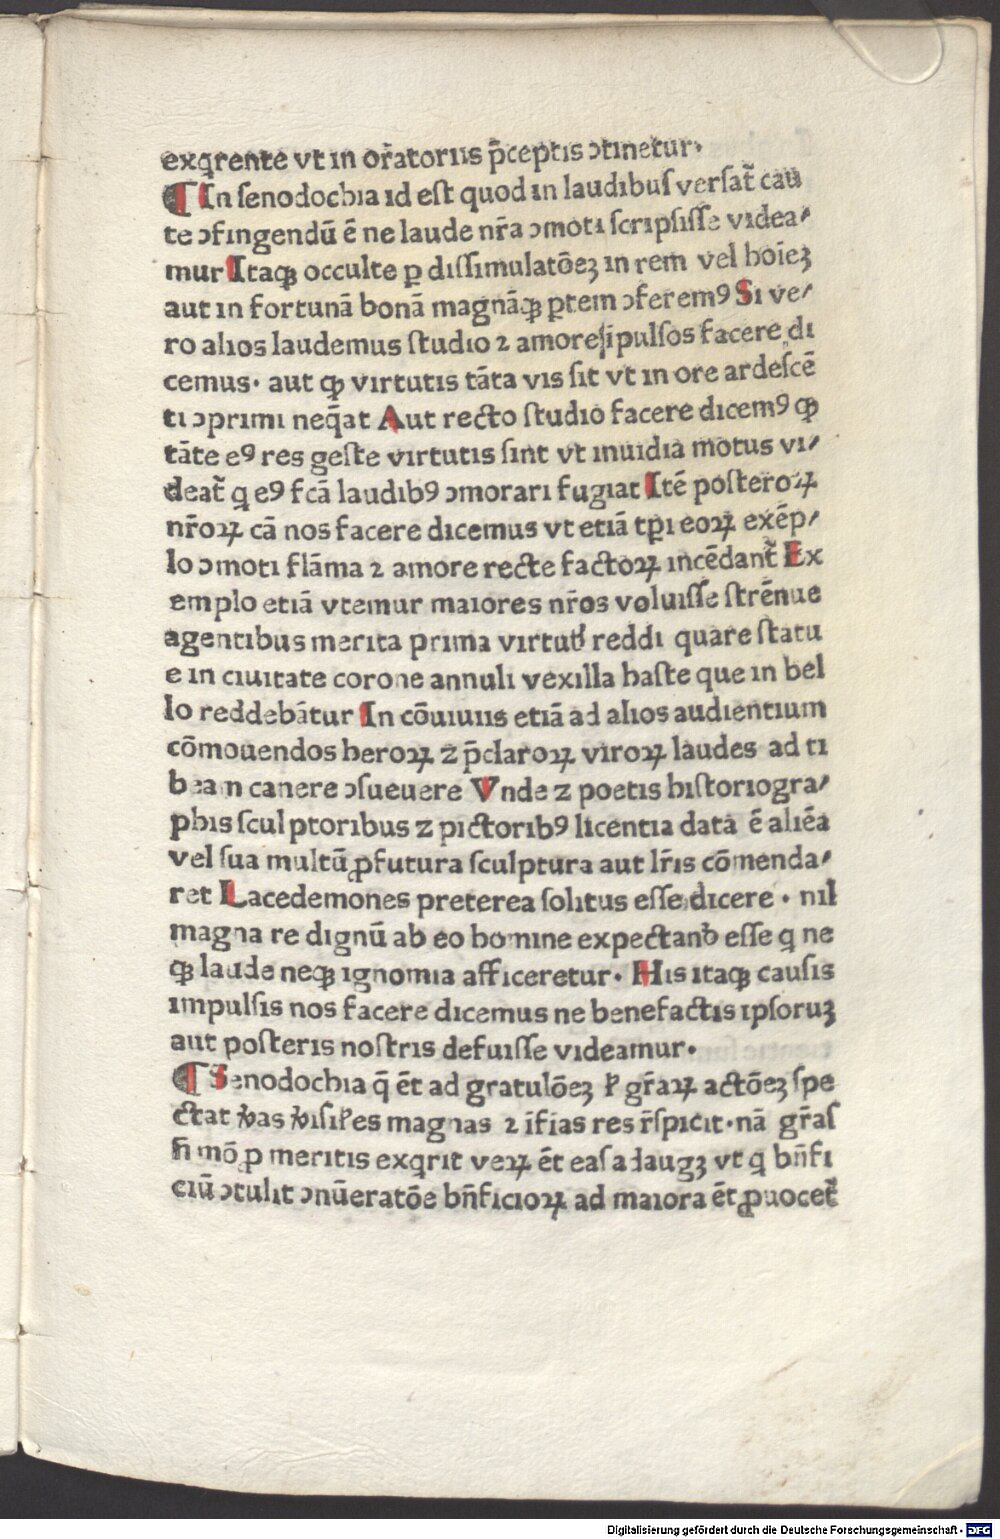 exqrente vt in or̃atoriis p̃ceptis ↄtinetur·
¶ In ſenodochia id est quod in laudibuſ verſat̃ cau
te ↄfingendũ ẽ ne laude nr̃a ↄmoti ſcripſiſſe videa⸗
mur Itaqꝫ occulte ꝑ diſſimulatõeꝫ in rem vel hoĩeꝫ
aut in fortunã bonã magnãqꝫ ꝑtem ↄferemꝰ Si ve⸗
ro alios laudemus ſtudio ⁊ amore ĩpulſos facere di
cemus· aut ꝙ virtutis tãta vis ſit vt in ore ardeſcẽ
ti ↄprimi neq̃at Aut recto ſtudio facere dicemꝰ ꝙ
tãte eꝰ res geſte virtutis ſint vt inuidia motus vi⸗
deat̃ q eꝰ fcã laudibꝰ ↄmorari fugiat Itẽ poſteroꝝ
nr̃oꝝ cã nos facere dicemus vt etiã tꝑi eoꝝ exẽp⸗
lo ↄmoti flãma ⁊ amore recte factoꝝ incẽdant̃ Ex
emplo etiã vtemur maiores nr̃os voluiſſe ſtrẽnue
agentibus merita prima virtutꝭ reddi quare ſtatu
e in ciuitate corone annuli vexilla haſte que in bel
lo reddebãtur In cõuiuiis etiã ad alios audientium
cõmouendos heroꝝ ⁊ p̃claroꝝ viroꝝ laudes ad ti
beam canere ↄſueuere Vnde ⁊ poetis hiſtoriogra⸗
phis ſculptoribus ⁊ pictoribꝰ licentia data ẽ aliẽa
vel ſua multũ ꝓfutura ſculptura aut lr̃is cõmenda⸗
ret Lacedemones preterea ſolitus eſſe dicere · nil
magna re dignũ ab eo homine expectanð eſſe q ne
qꝫ laude neqꝫ ignomia afficeretur· His itaqꝫ cauſis
impulſis nos facere dicemus ne benefactis ipſoruꝫ
aut poſteris noſtris defuiſſe videamur·
¶ Senodochia q̃ ẽt ad gratulõeꝫ ł gr̃aꝝ actõeꝫ ſpe
ctat ꝟbas ꝟiſiłes magnas ⁊ ĩfias res r̃ſpicit·nã gr̃aſ
ñ mõ ꝑ meritis exqrit veꝝ ẽt eaſ adaugꝫ vt q bñfi
ciũ ↄtulit ↄnũeratõe bñficioꝝ ad maiora ẽt ꝓuocet̃
Digitalisierung gefördert durch die Deutsche Forschungsgemeinschaft - DFG